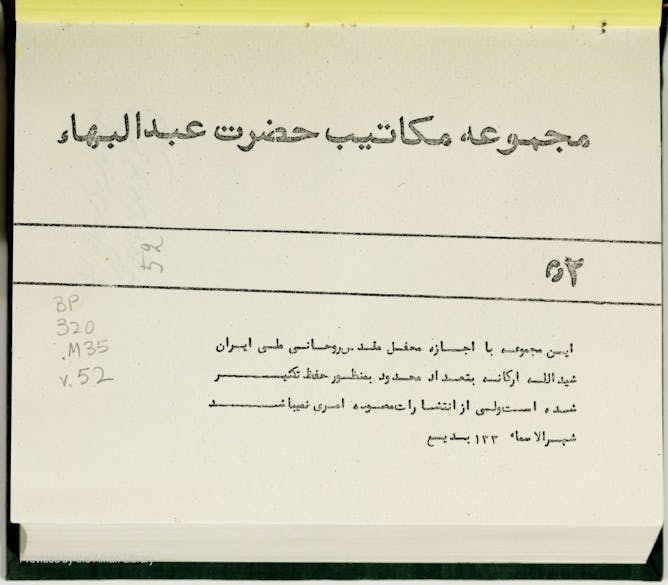 مجموعه مکاتیب حضرت عبدالبهاء
52
۵۲
BP
320
.M35
v.52
این مجموعه با اجازه محفل مقدس روحانی ملی ایران
شیدالله ارکانه بتعداد محدود بمنظور حفظ تکثیر
شده است ولی از انتشارات مصوبه امری نمیباشد
شهرالاسماء ۱۳۳ بدیع
Provided by the Afnan Library